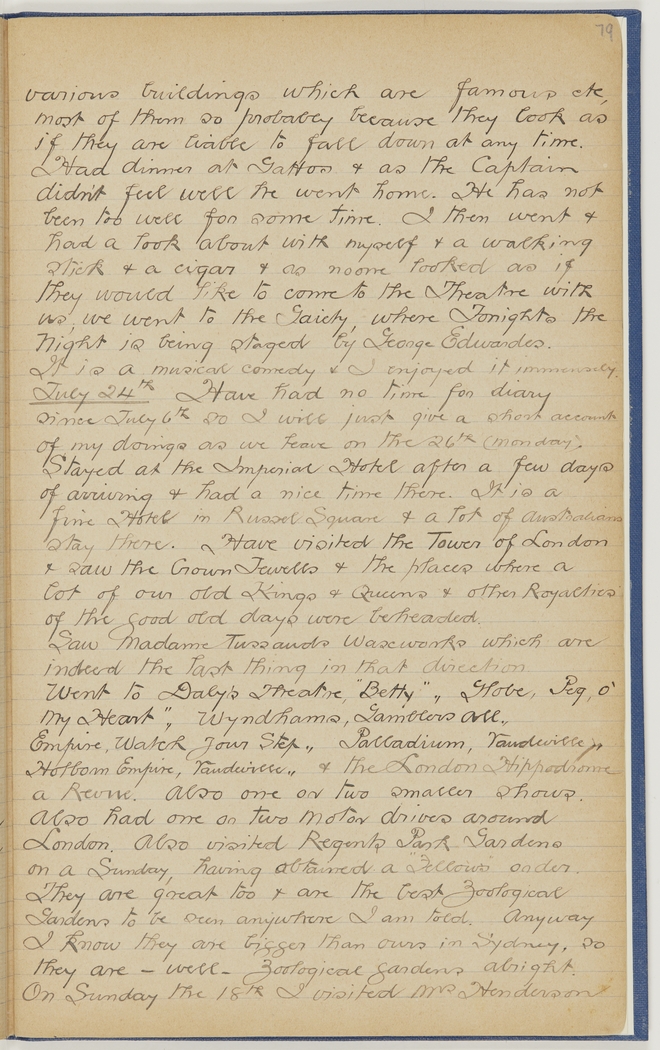 79
various buildings which are famous etc,
most of them so probabey because they look as
if they are liable to fall down at any time.
Had dinner at Gattos & as the Captain
didn't feel well he went home. He has not
been too well for some time. I then went &
had a look about with myself & a walking
stick & a cigar & as noone looked as if
they would like to come to the Theatre with
us, we went to the Gaiety, where Tonights the
Night is being staged by George Edwardes.
It is a musical comedy & I enjoyed it immensely.
July 24th Have had no time for diary
since July 6th so I will just give a short account
of my doings as we leave on the 26th (Monday).
Stayed at the Imperial Hotel after a few days
of arriving & had a nice time there. It is a
fine Hotel in Russel Square & a lot of Australians
stay there. Have visited the Tower of London
& saw the Crown Jewells & the places where a
lot of our old Kings & Queens & other Royalties
of the good old days were beheaded.
Saw Madame Tussauds Waxworks which are
indeed the last thing in that direction
Went to Daly's Theatre, "Betty" ,, Globe, Peg, O'
My Heart" ,, Wyndhams, Gamblers All ,,
Empire, Watch Your Step ,, Palladium, Vaudeville ,,
Holborn Empire, Vaudeville ,, & the London Hippodrome
a Revue. Also one or two smaller shows.
Also had one or two motor drives around
London. Also visited Regents Park Gardens
on a Sunday, having obtained a "Fellows" order.
They are great too & are the best Zoological
Gardens to be seen anywhere I am told. Anyway
I know they are bigger than ours in Sydney, so
they are – well – Zoological gardens alright.
On Sunday the 18th I visited Mrs Henderson